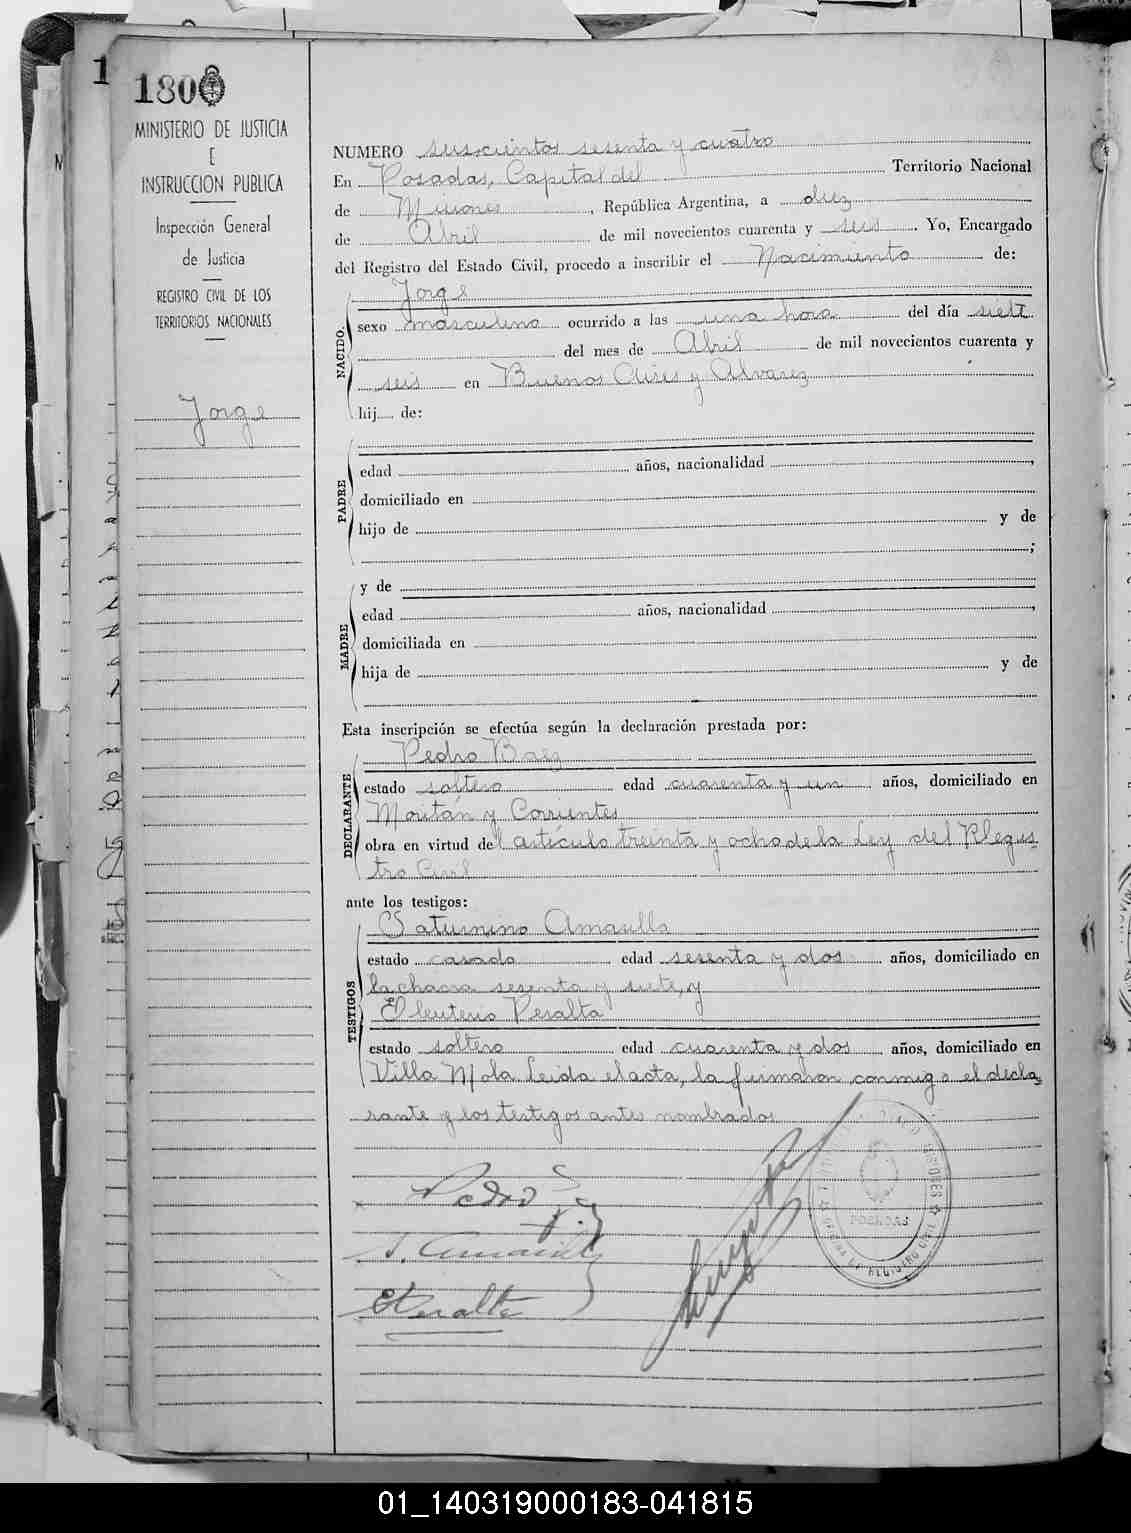 1
180
MINISTERIO DE JUSTICIA
E
INSTRUCCION PUBLICA
Inspección General
de Justicia
REGISTRO CIVIL DE LOS
TERRITORIOS NACIONALES
Jorge
NUMERO seiscientos sesenta y cuatro
En Posadas, Capital del Territorio Nacional
de Misiones, República Argentina, a diez
de Abril de mil novecientos cuarenta y seis. Yo, Encargado
del Registro del Estado Civil, procedo a inscribir el Nacimiento de:
NACIDO.
Jorge
sexo masculino ocurrido a las una hora del día siete
del mes de Abril de mil novecientos cuarenta y
seis en Buenos Aires y Alvarez
hij de:
PADRE
edad años, nacionalidad ,
domiciliado en
hijo de y de
;
MADRE
y de
edad años, nacionalidad ,
domiciliada en
hija de y de
Esta inscripción se efectúa según la declaración prestada por:
DECLARANTE
Pedro Baez
estado soltero edad cuarenta y un años, domiciliado en
y Corrientes
obra en virtud del artículo treinta y ocho de la Ley del Regis-
tro Civil
ante los testigos:
TESTIGOS
Saturnino Amarilla
estado casado edad sesenta y dos años, domiciliado en
la chacra sesenta y siete, y
Eleuterio Peralta
estado soltero edad cuarenta y dos años, domiciliado en
Villa Mola Leida el acta, la firmaron conmigo el decla-
rante y los testigos antes nombrados
Pedro
S. Amarilla
E Peralta
POSADAS
REGISTRO CIVIL
01_140319000183-041815